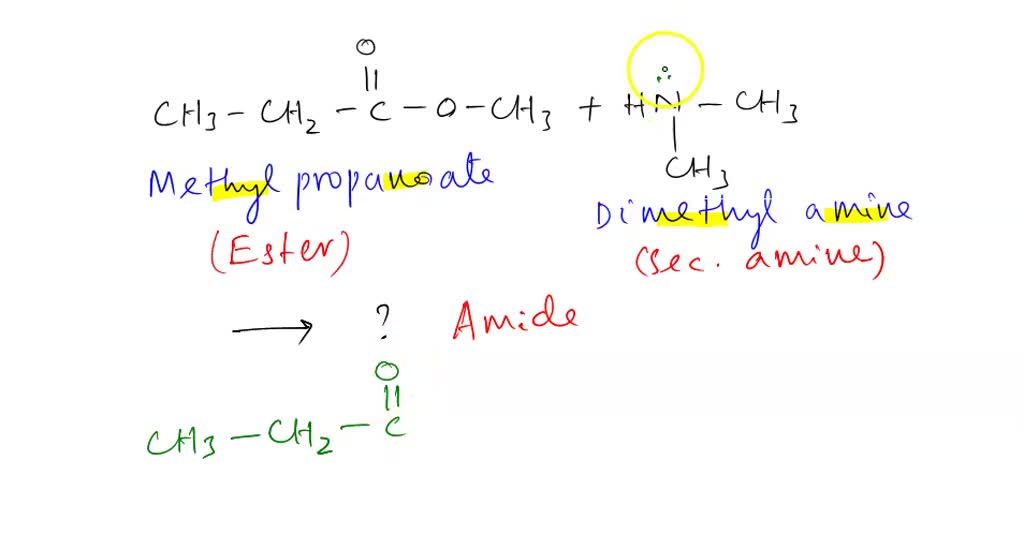 O
||
CH3 – CH2 – C – O – CH3 + HN – CH3
|
CH3
Methyl propanoate
Dimethyl amine
(Ester)
(sec. amine)
→ ? Amide
O
||
CH3 – CH2 – C